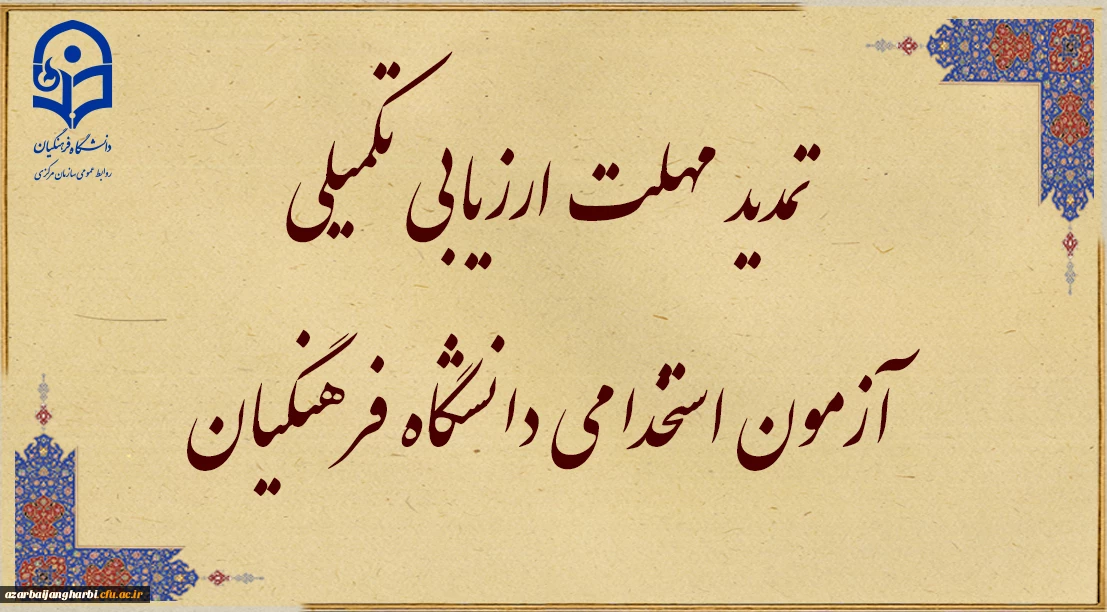 دانشگاه فرهنگیان
روابط عمومی سازمان مرکزی
تمدید مهلت ارزیابی تکمیلی
آزمون استخدامی دانشگاه فرهنگیان
azarbaijangharbi.cfu.ac.ir